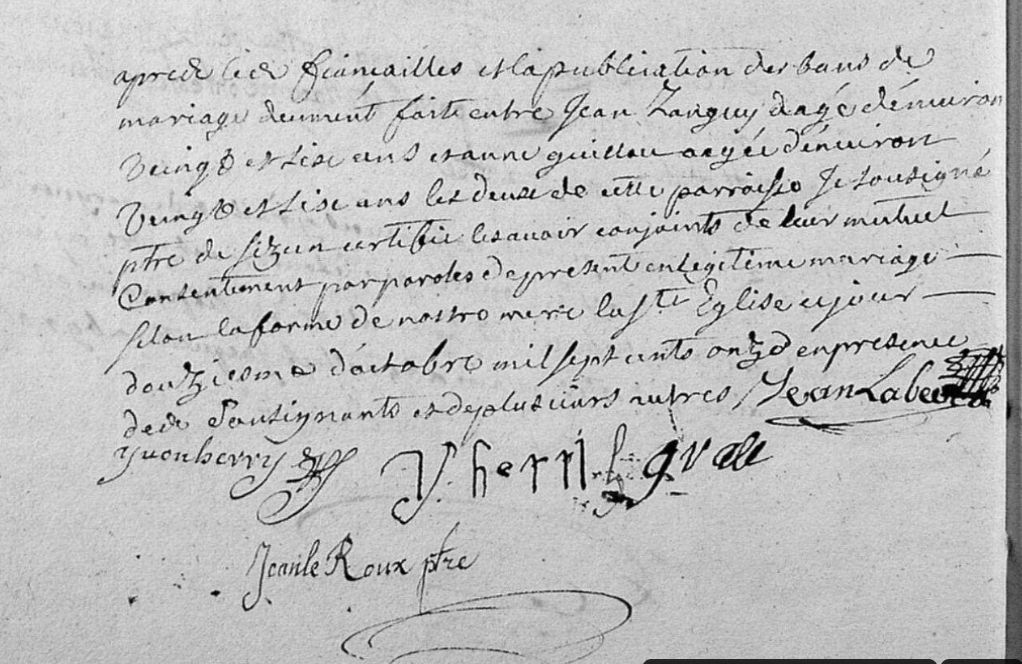 apres les fiancailles et la publication des bans de
mariage deument faite entre Jean Tanguy aagé d'environ
vingt et sixe ans et anne guillou aagée d'environ
vingt et sixe ans les deux de cette parroisse Je sousigné
ptre de sizun certifie les avoir conjoints de leur mutuel
Consentement par paroles de present en legitime mariage
selon la forme de nostre mere la ste Eglise ce jour
douziesme d'octobre mil sept cents onze en presence
des Sousignants et de plusieurs autres Jean Labe
yvon herry Y. herri
Jean le Roux ptre